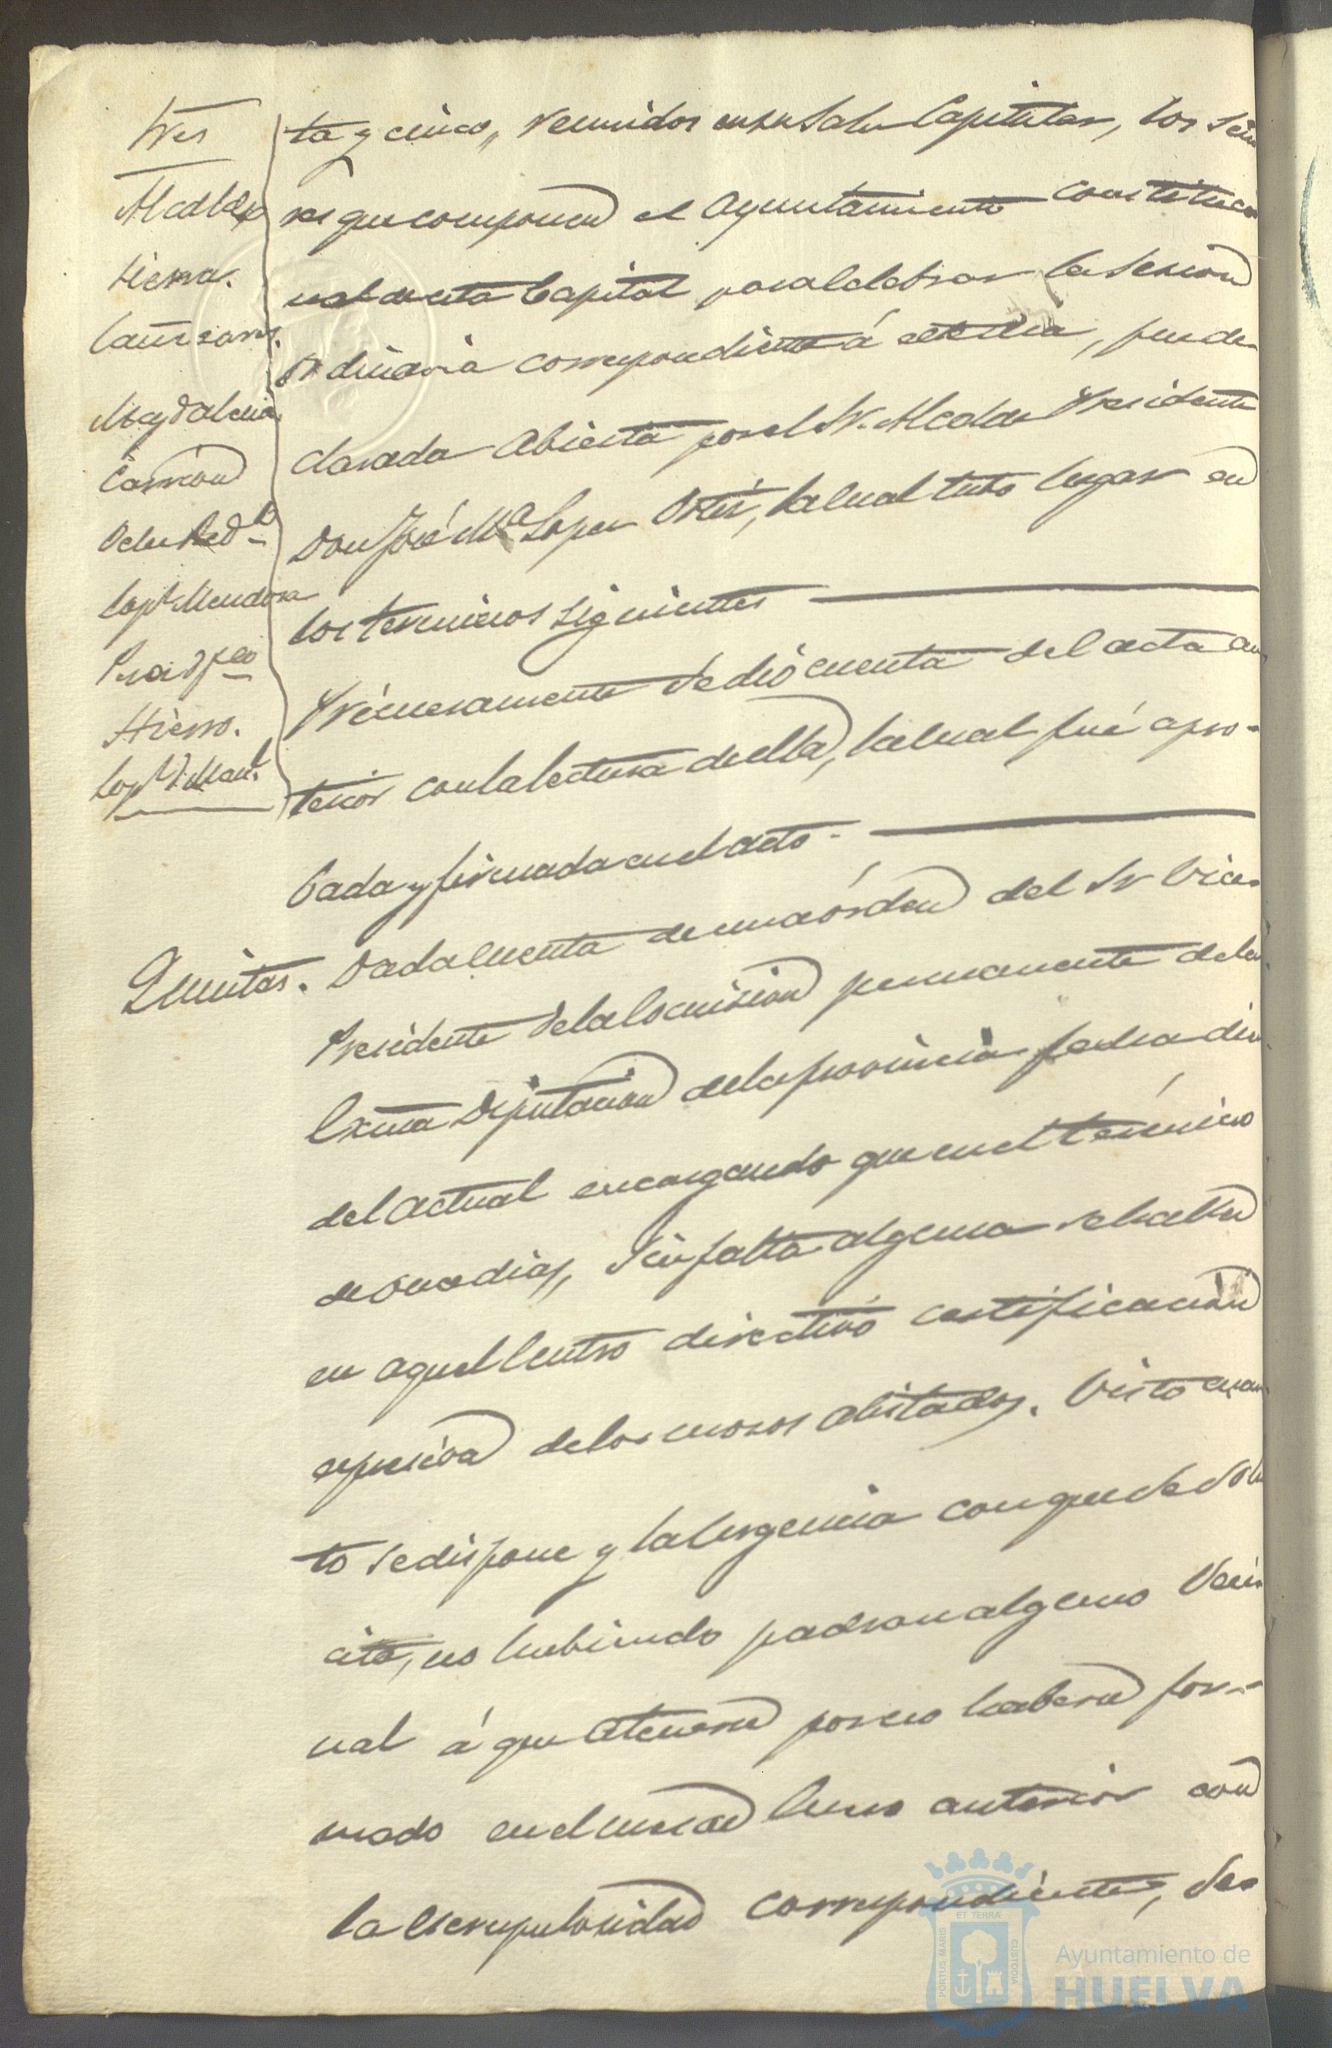 Sres
Alcalde
Sierra.
Cañizares.
Magdalena
Carrion
Dele Red.
Lopz. Mendoza
Hierro.
ta y cinco, reunidos en su Sala Capitular, los Seño
res que componen el Ayuntamiento constitucio
nal de esta Capital para celebrar la sesion
ordinaria correspondiente á este dia, fue de-
clarada abierta por el Sr. Alcalde Presidente
Don José Ma. Lopez Ortiz, la cual tubo lugar en
los terminos siguientes
Primeramente se dió cuenta del acta an
terior con la lectura de ella, la cual fué apro-
bada y firmada en el acto.
Quintas.
Dada cuenta de una órden del Sr Vice-
Presidente de la Comision permanente de la
Exma Diputacion de la provincia fecha diez
del actual encargando que en el término
de once dias, sin falta alguna se hallen
en aquel Centro directivo certificacion
espresiva de los mozos alistados. Visto cuan
to se dispone y la urgencia con que se soli
cita, no habiendo padron alguno Veci
nal á que atenerse por no haberse for-
mado en el mes de Enero anterior con
la escrupulosidad correspondiente, se
PORTUS MARIS ET TERRAE CUSTODIA
Ayuntamiento de
HUELVA